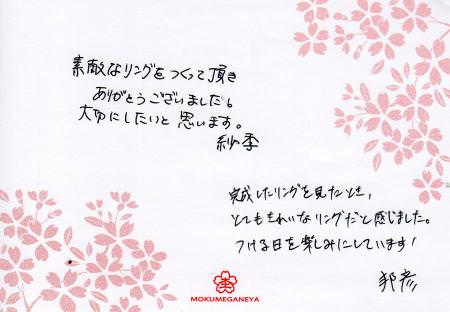 素敵なリングをつくって頂き
ありがとうございました。
大切にしたいと思います。
紗季
完成したリングを見たとき、
とてもきれいなリングだと感じました。
つける日を楽しみにしています!
邦彦
MOKUMEGANEYA